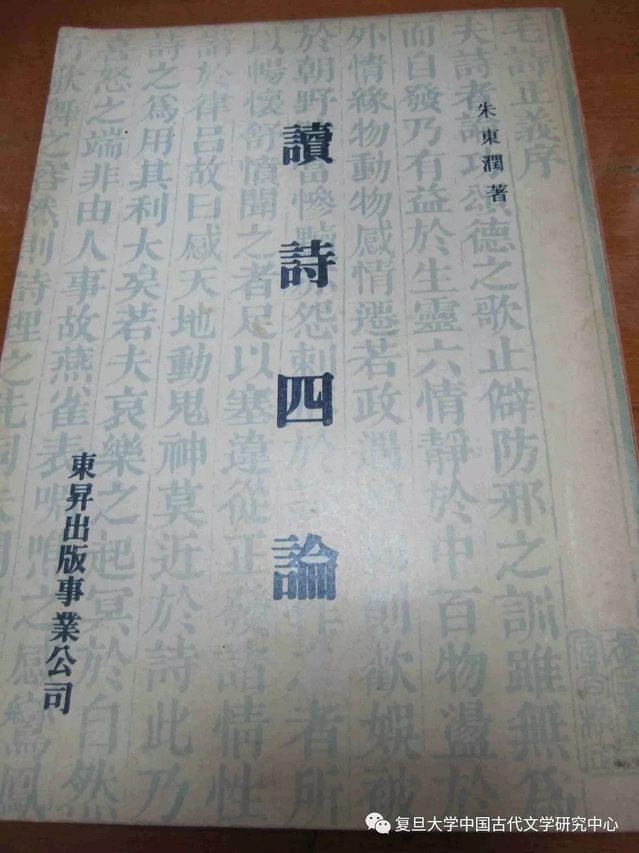 朱東潤著
讀詩四論
東昇出版事業公司
毛詩正義序
夫詩者論功頌德之歌止僻防邪之訓雖無為
而自發乃有益於生靈六情靜於中百物盪於
外情緣物動物感情遷若政遇
則歡娛被
於朝野
慘黷
怨刺
於
者所
以暢懷舒憤聞之者足以塞違從正發諸情性
諧於律呂故曰感天地動鬼神莫近於詩此乃
詩之為用其利大矣若夫哀樂之起冥於自然
喜怒之端非由人事故燕雀表啁噍之感鸞鳳
歌舞之容然則詩理之先同夫開
复旦大学中国古代文学研究中心